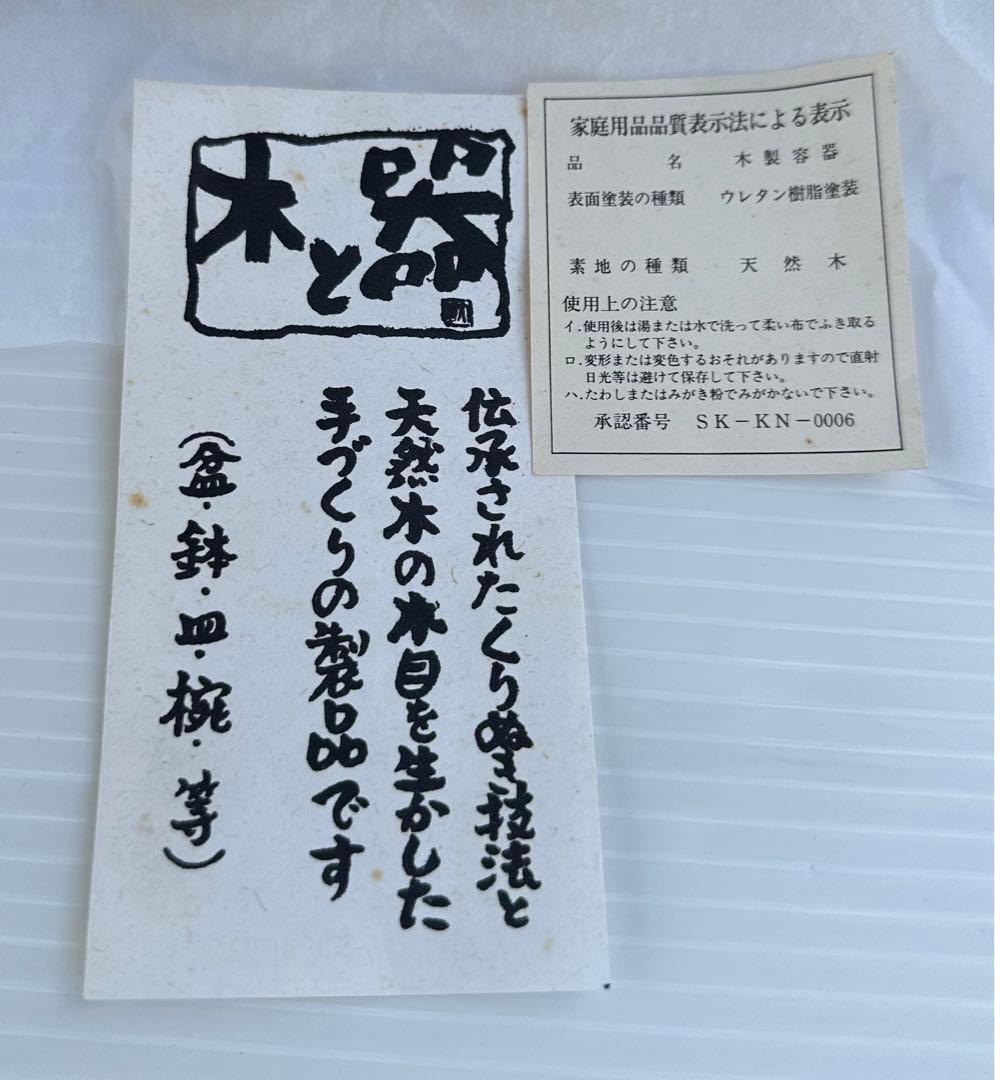 木と器
伝承されたくりぬき技法と
天然木の木目を生かした
手づくりの製品です
(盆・鉢・皿・椀・等)
家庭用品品質表示法による表示
品名 木製容器
表面塗装の種類 ウレタン樹脂塗装
素地の種類 天然木
使用上の注意
イ.使用後は湯または水で洗って柔い布でふき取る
ようにして下さい。
ロ.変形または変色するおそれがありますので直射
日光等は避けて保存して下さい。
ハ.たわしまたはみがき粉でみがかないで下さい。
承認番号 SK-KN-0006